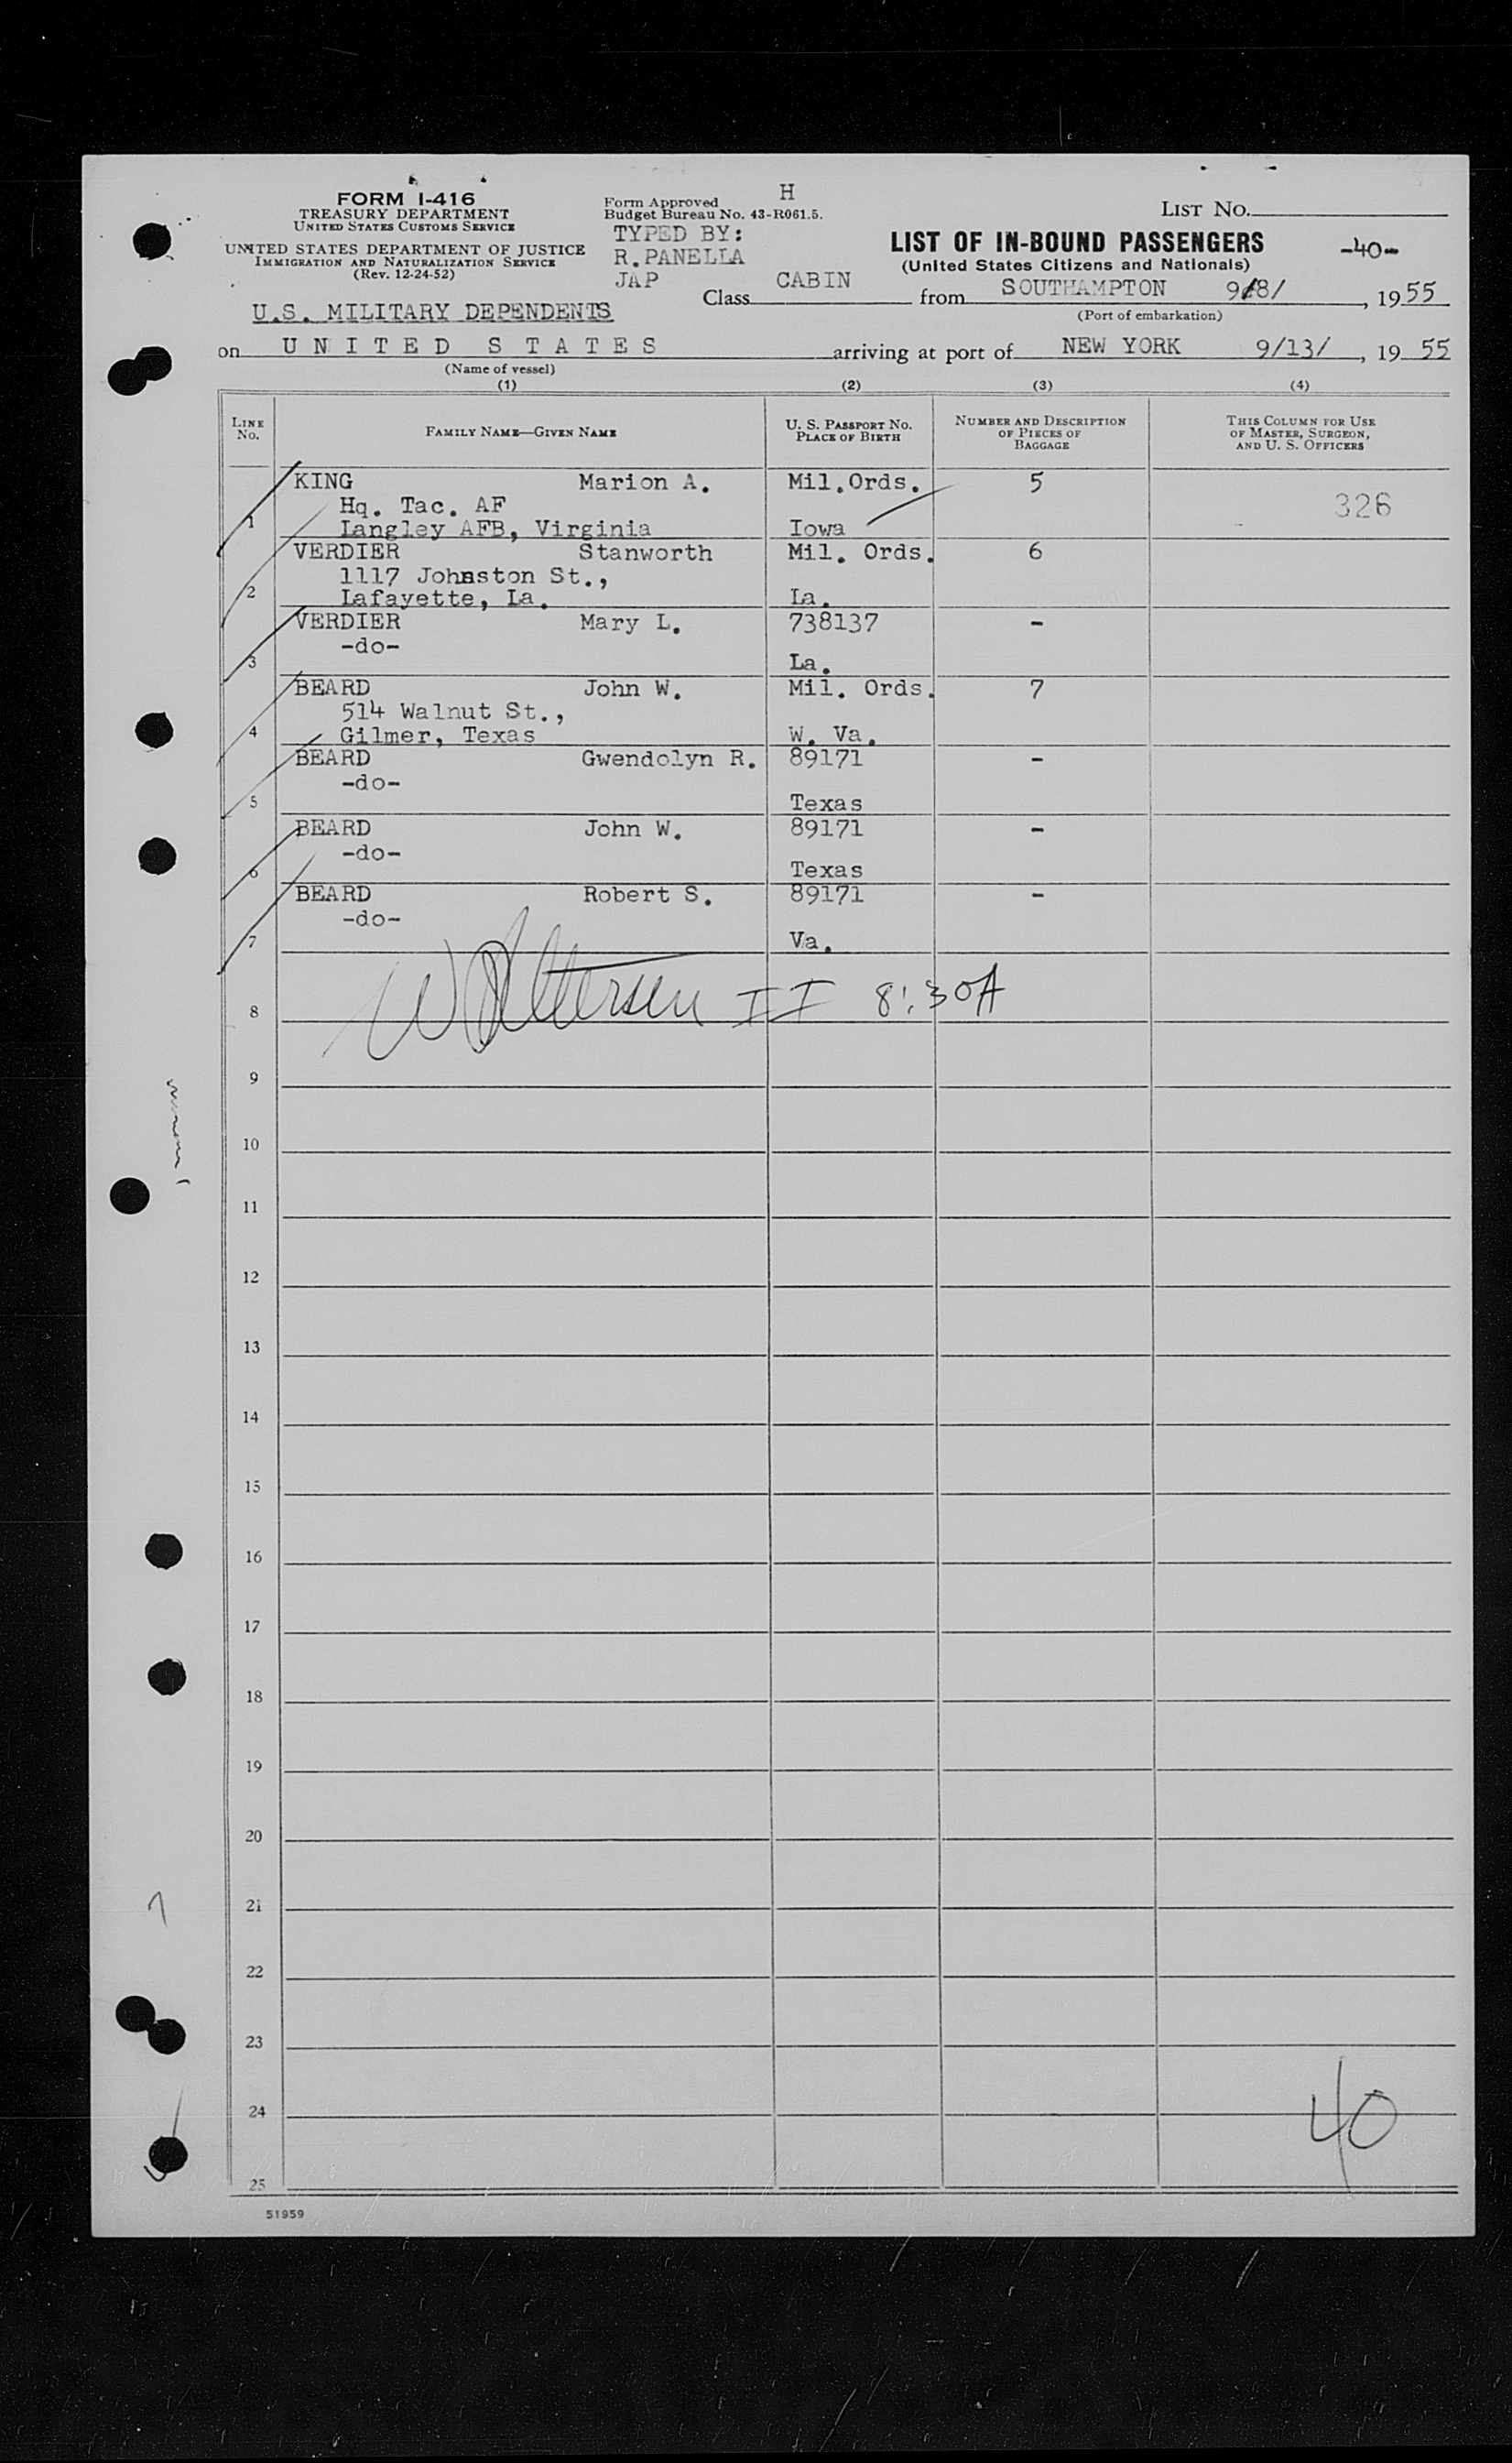 FORM I-416
TREASURY DEPARTMENT
UNITED STATES CUSTOMS SERVICE
UNITED STATES DEPARTMENT OF JUSTICE
IMMIGRATION AND NATURALIZATION SERVICE
(Rev. 12-24-52)
H
Form Approved
Budget Bureau No. 43-R061.5.
TYPED BY:
R.PANELLA
JAP
LIST NO.
LIST OF IN-BOUND PASSENGERS
-40-
(United States Citizens and Nationals)
Class CABIN from SOUTHAMPTON 9/8/, 1955
(Port of embarkation)
U.S. MILITARY DEPENDENTS
on UNITED STATES arriving at port of NEW YORK 9/13/, 1955
(Name of vessel)
(1) (2) (3) (4)
LINE NO. FAMILY NAME—GIVEN NAME U. S. PASSPORT NO. PLACE OF BIRTH NUMBER AND DESCRIPTION OF PIECES OF BAGGAGE THIS COLUMN FOR USE OF MASTER, SURGEON, AND U. S. OFFICERS
KING Marion A. Mil.Ords. 5
Hq. Tac. AF 326
1 Langley AFB, Virginia Iowa
VERDIER Stanworth Mil. Ords. 6
1117 Johnston St.,
2 Lafayette, La. La.
VERDIER Mary L. 738137 -
-do-
3 La.
BEARD John W. Mil. Ords. 7
514 Walnut St.,
4 Gilmer, Texas W. Va.
BEARD Gwendolyn R. 89171 -
-do-
5 Texas
BEARD John W. 89171 -
-do-
6 Texas
BEARD Robert S. 89171 -
-do-
7 Va.
II 8:30A
8
9
10
11
12
13
14
15
16
17
18
19
20
21
22
23
24
40
25
51959